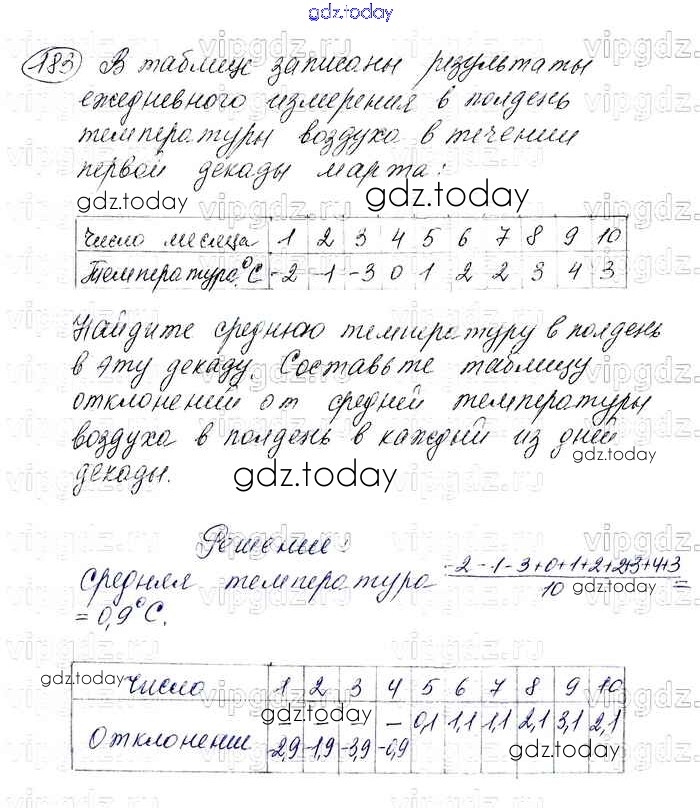 gdz.today
183 В таблице записаны результаты
ежедневного измерения в полдень
температуры воздуха в течении
первой декады марта:
gdz.today gdz.today
Число месяца 1 2 3 4 5 6 7 8 9 10
Температура °C -2 -1 -3 0 1 2 2 3 4 3
Найдите среднюю температуру в полдень
в эту декаду. Составьте таблицу
отклонений от средней температуры
воздуха в полдень в каждый из дней
декады.
gdz.today
Решение:
средняя температура (-2-1-3+0+1+2+2+3+4+3)/10 =
= 0,9°C.
gdz.today
Число 1 2 3 4 5 6 7 8 9 10
gdz.today
Отклонение -2,9 -1,9 -3,9 -0,9 0,1 1,1 1,1 2,1 3,1 2,1
gdz.today